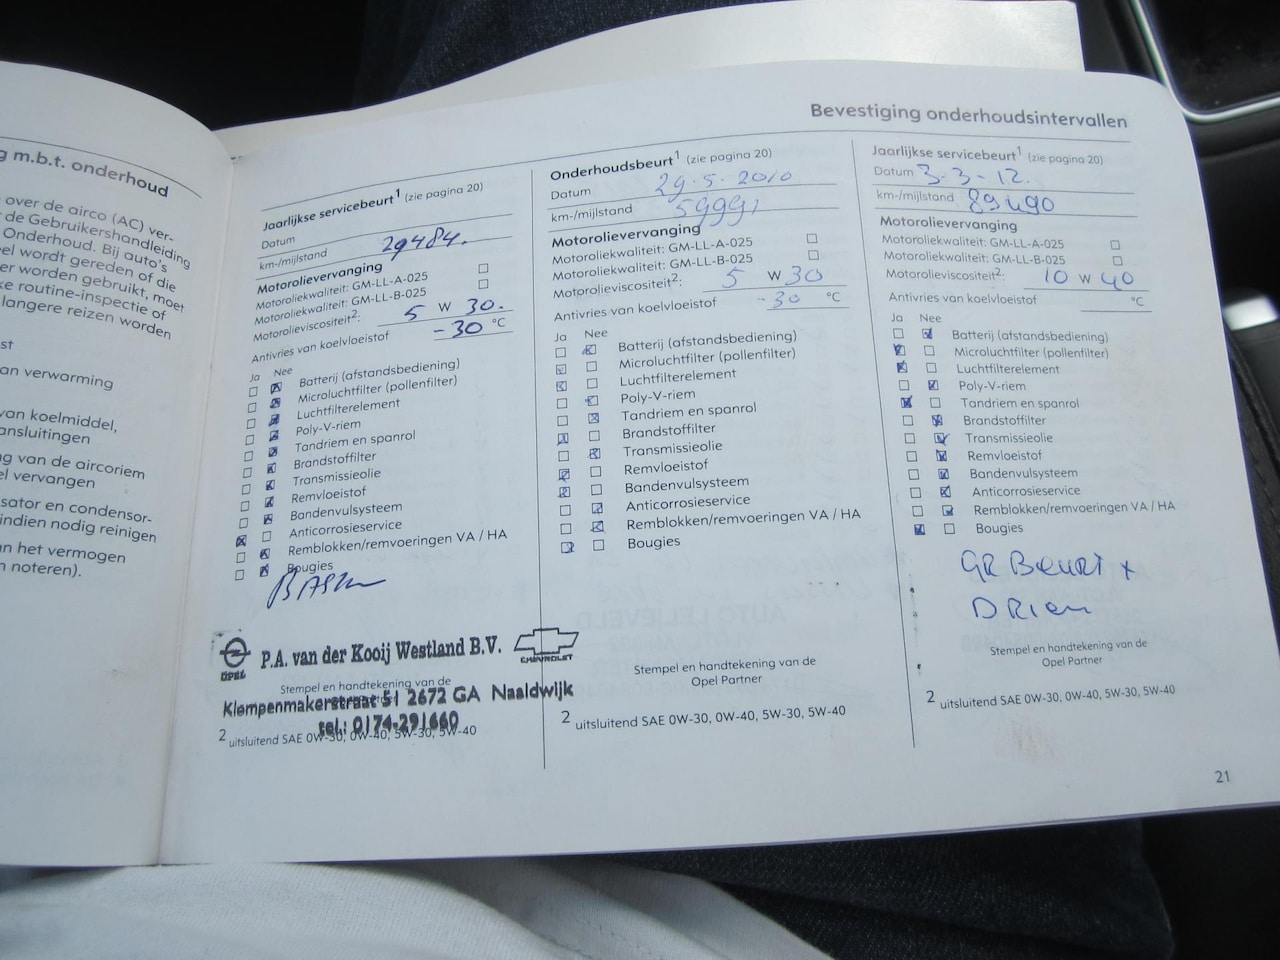 g m.b.t. onderhoud
over de airco (AC) ver-
de Gebruikershandleiding
Onderhoud. Bij auto's
eel wordt gereden of die
er worden gebruikt, moet
ke routine-inspectie of
langere reizen worden
st
an verwarming
van koelmiddel,
ansluitingen
ng van de aircoriem
el vervangen
sator en condensor-
indien nodig reinigen
an het vermogen
n noteren).
Bevestiging onderhoudsintervallen
Jaarlijkse servicebeurt1 (zie pagina 20)
Datum
km-/mijlstand 29484.
Motorolievervanging
Motoroliekwaliteit: GM-LL-A-025
Motoroliekwaliteit: GM-LL-B-025
Motorolieviscositeit2: 5 W 30.
Antivries van koelvloeistof -30 °C
Ja Nee
Batterij (afstandsbediening)
Microluchtfilter (pollenfilter)
Luchtfilterelement
Poly-V-riem
Tandriem en spanrol
Brandstoffilter
Transmissieolie
Remvloeistof
Bandenvulsysteem
Anticorrosieservice
Remblokken/remvoeringen VA / HA
Bougies
OPEL P.A. van der Kooij Westland B.V. CHEVROLET
Stempel en handtekening van de
Klompenmakerstraat 51 2672 GA Naaldwijk
tel.: 0174-291660
2 uitsluitend SAE 0W-30, 0W-40, 5W-30, 5W-40
Onderhoudsbeurt1 (zie pagina 20)
Datum 29.5.2010
km-/mijlstand 59991
Motorolievervanging
Motoroliekwaliteit: GM-LL-A-025
Motoroliekwaliteit: GM-LL-B-025
Motorolieviscositeit2: 5 W 30
Antivries van koelvloeistof -30 °C
Ja Nee
Batterij (afstandsbediening)
Microluchtfilter (pollenfilter)
Luchtfilterelement
Poly-V-riem
Tandriem en spanrol
Brandstoffilter
Transmissieolie
Remvloeistof
Bandenvulsysteem
Anticorrosieservice
Remblokken/remvoeringen VA / HA
Bougies
Stempel en handtekening van de
Opel Partner
2 uitsluitend SAE 0W-30, 0W-40, 5W-30, 5W-40
Jaarlijkse servicebeurt1 (zie pagina 20)
Datum 3-3-12.
km-/mijlstand 89490
Motorolievervanging
Motoroliekwaliteit: GM-LL-A-025
Motoroliekwaliteit: GM-LL-B-025
Motorolieviscositeit2: 10 W 40
Antivries van koelvloeistof °C
Ja Nee
Batterij (afstandsbediening)
Microluchtfilter (pollenfilter)
Luchtfilterelement
Poly-V-riem
Tandriem en spanrol
Brandstoffilter
Transmissieolie
Remvloeistof
Bandenvulsysteem
Anticorrosieservice
Remblokken/remvoeringen VA / HA
Bougies
GR Beurt +
DRiem
Stempel en handtekening van de
Opel Partner
2 uitsluitend SAE 0W-30, 0W-40, 5W-30, 5W-40
21